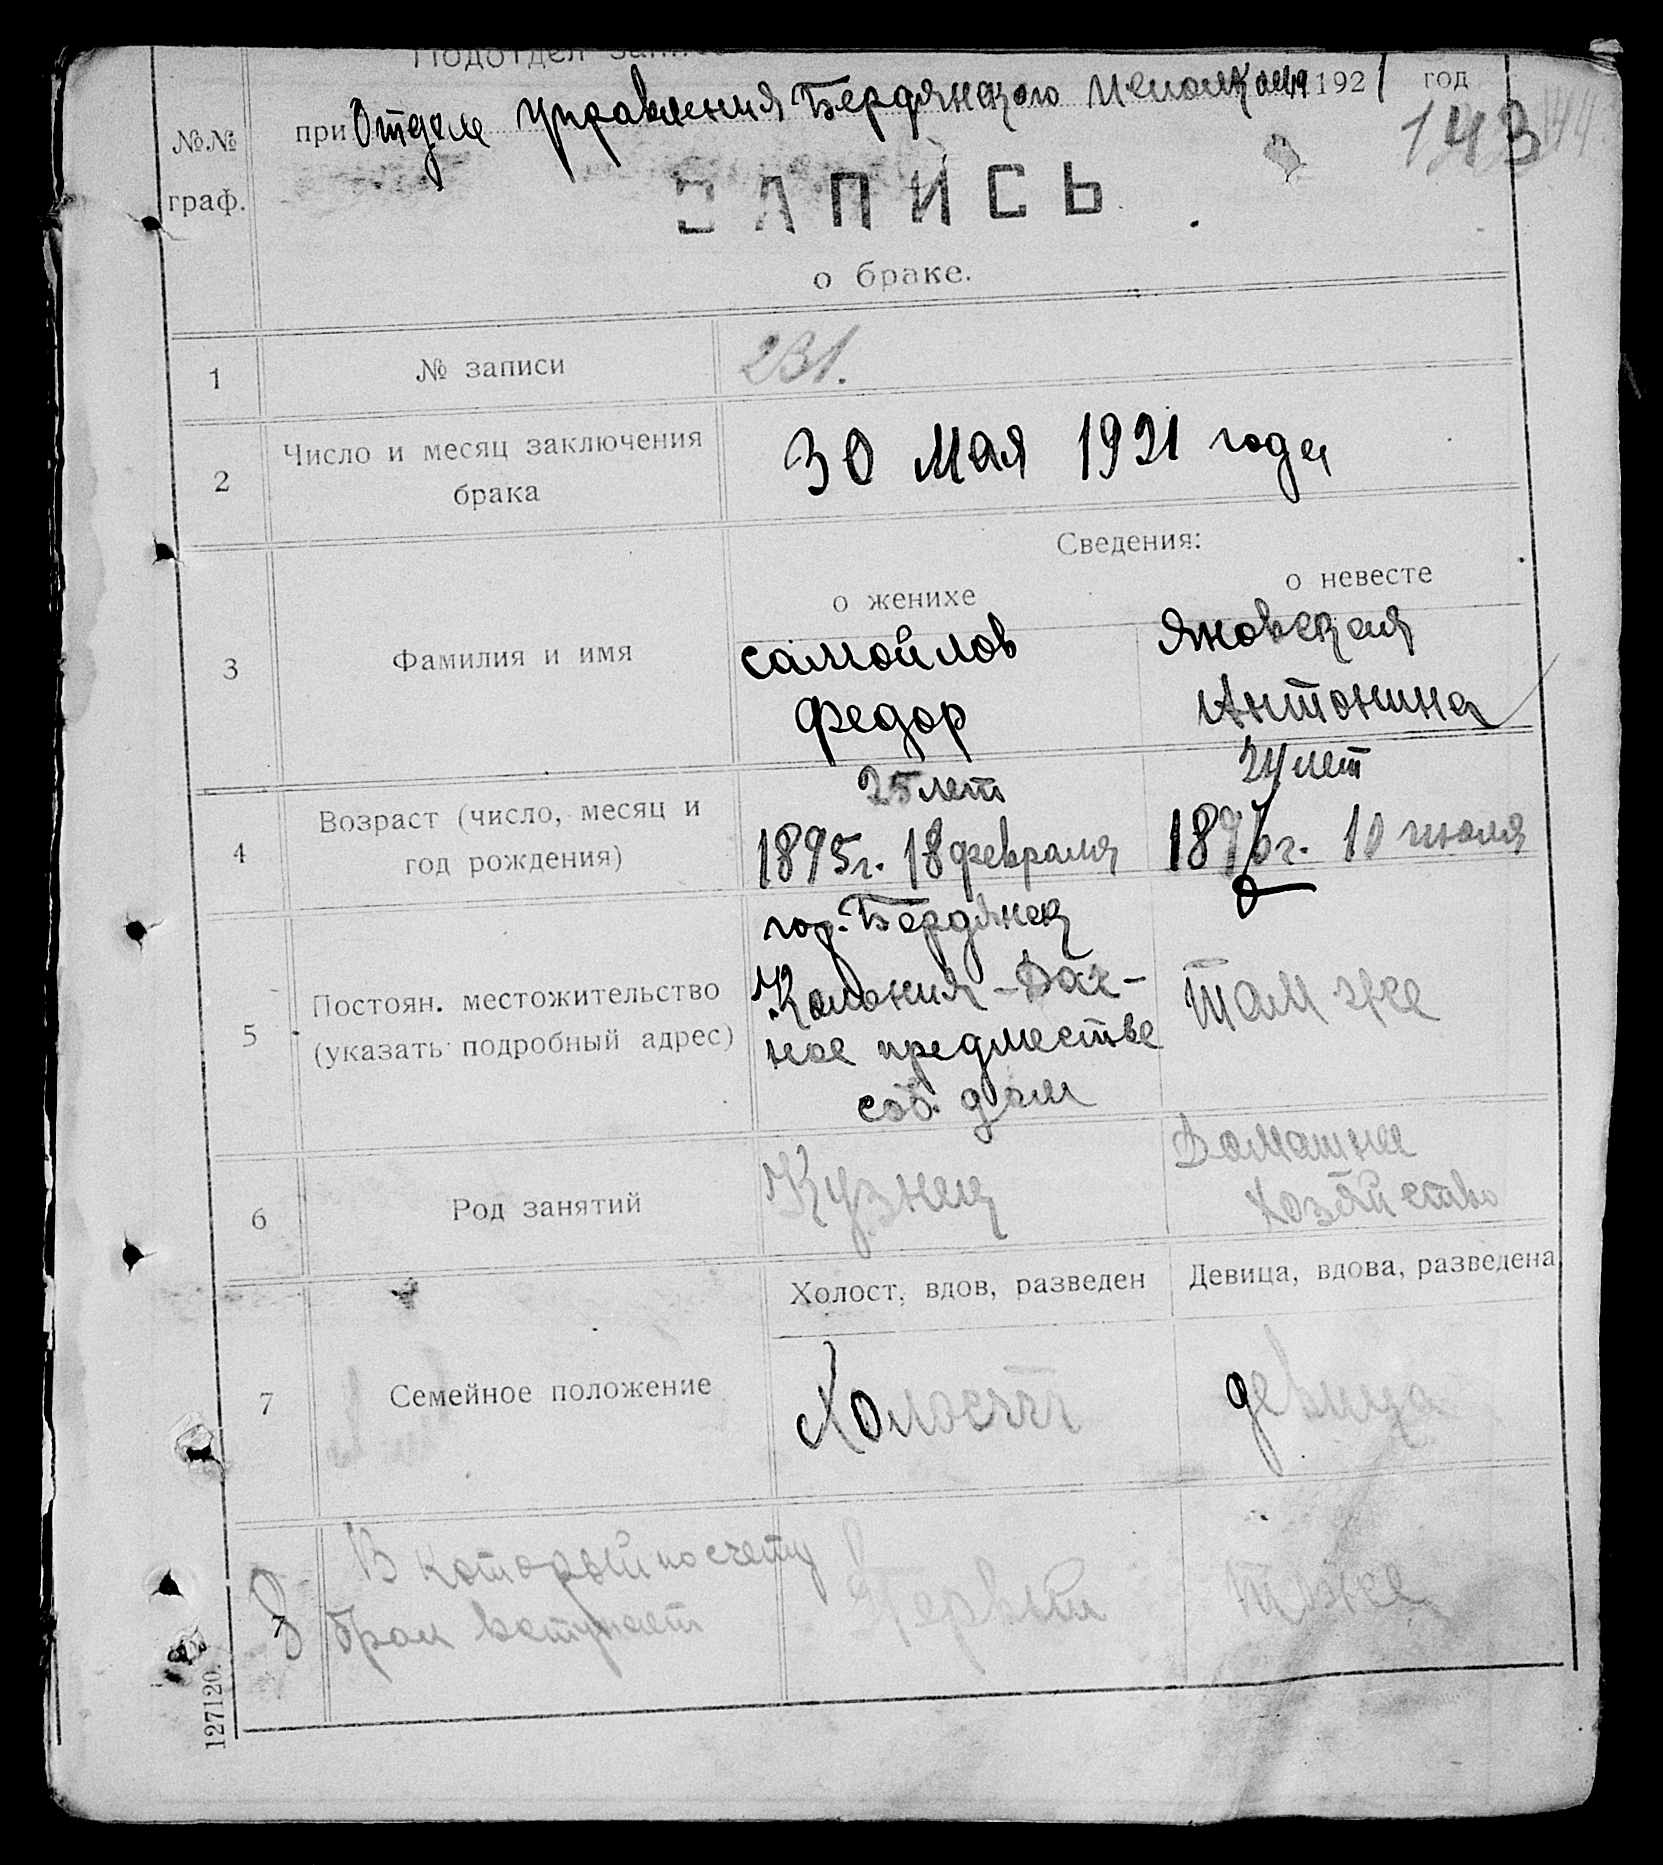 Подотдел
при Отделе Управления Бердянского Исполкома 1921 год
№.№
граф.
143 144
ЗАПИСЬ
о браке.
1 № записи 231.
2 Число и месяц заключения
брака
30 Мая 1921 года
Сведения:
о женихе о невесте
3 Фамилия и имя
Самойлов Яновская
Федор Антонина
25 лет 24 лет
4 Возраст (число, месяц и
год рождения)
1895г. 18 февраля 1896г. 10 июля
5 Постоян. местожительство
(указать подробный адрес)
гор. Бердянск
Колония - Дач-
ное предместье
соб. дом
Там же
6 Род занятий
Кузнец Домашнее
хозяйство
Холост, вдов, разведен Девица, вдова, разведена
7 Семейное положение
Холост девица
8 В который по счету
брак вступает
Первый тоже
127120.